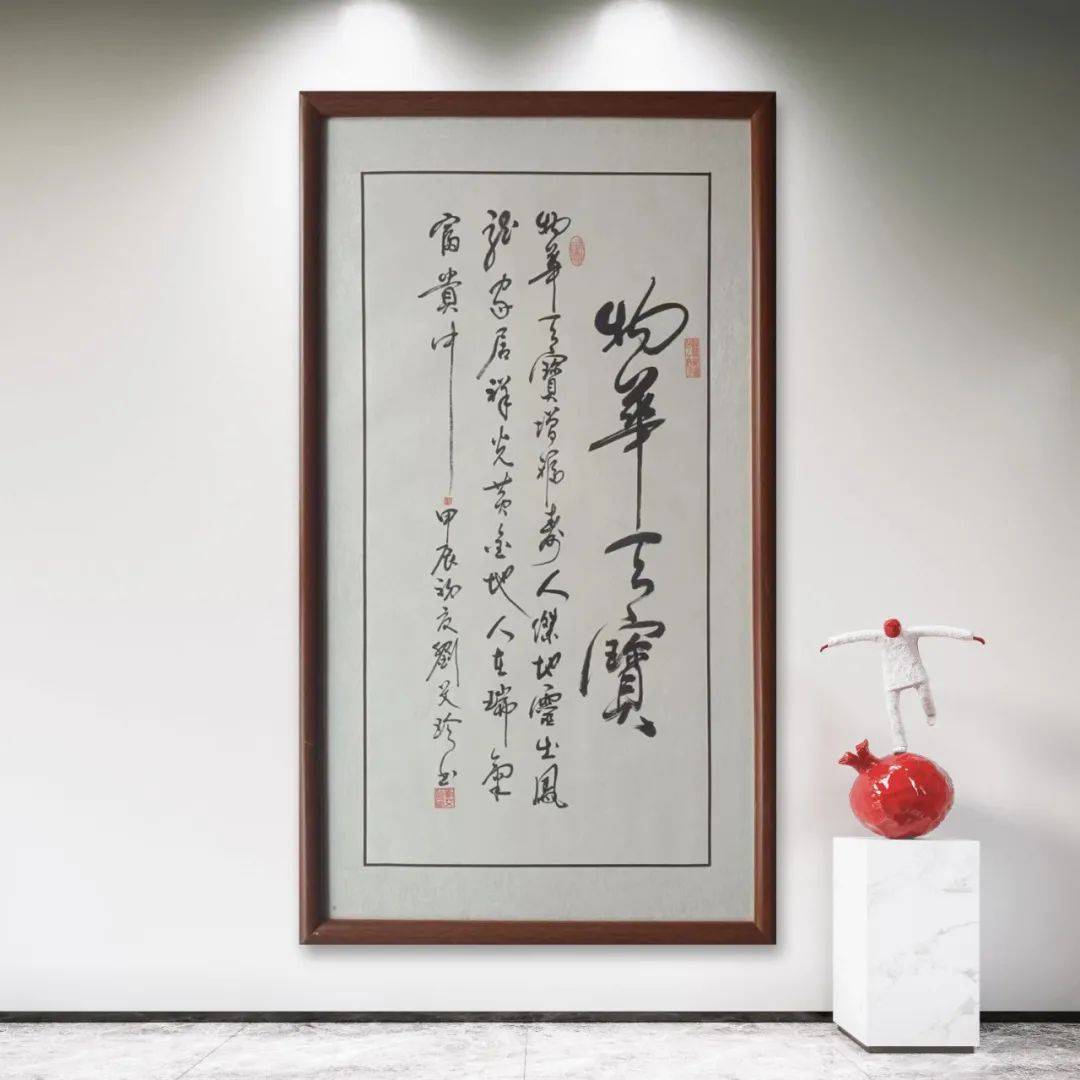 物華天寶
物華天寶增福壽人傑地靈出鳳
龍家居祥光黃金地人在瑞氣
富貴中 甲辰初夏劉艾書